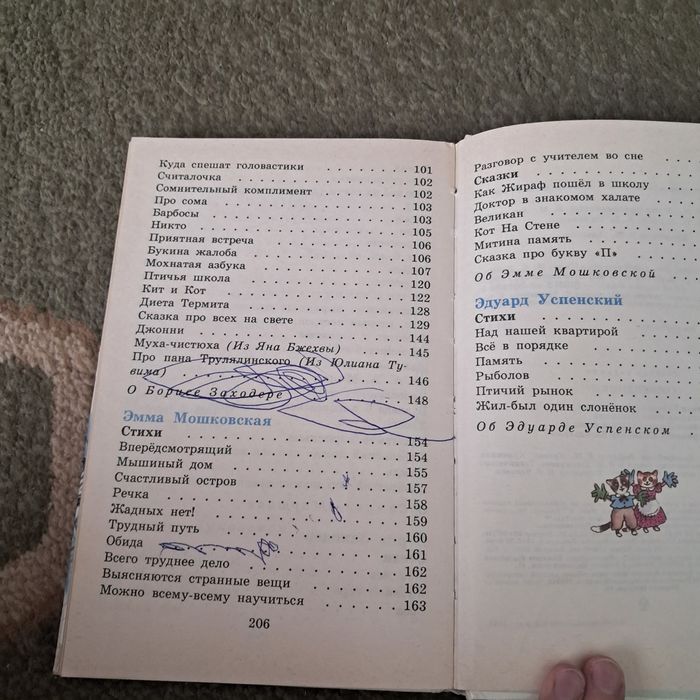 Куда спешат головастики . . . . . . . . . . . 101
Считалочка . . . . . . . . . . . . . . . . . . 102
Сомнительный комплимент . . . . . . . . . . 102
Про сома . . . . . . . . . . . . . . . . . . . 103
Барбосы . . . . . . . . . . . . . . . . . . . 103
Никто . . . . . . . . . . . . . . . . . . . . 105
Приятная встреча . . . . . . . . . . . . . . . 106
Букина жалоба . . . . . . . . . . . . . . . . 106
Мохнатая азбука . . . . . . . . . . . . . . . 107
Птичья школа . . . . . . . . . . . . . . . . . 120
Кит и Кот . . . . . . . . . . . . . . . . . . 122
Диета Термита . . . . . . . . . . . . . . . . 128
Сказка про всех на свете . . . . . . . . . . . 129
Джонни . . . . . . . . . . . . . . . . . . . . 144
Муха-чистюха (Из Яна Бжехвы) . . . . . . . . 145
Про пана Трулялинского (Из Юлиана Ту-
вима) . . . . . . . . . . . . . . . . . . . . 146
О Борисе Заходере . . . . . . . . . . . . . . 148
Эмма Мошковская
Стихи . . . . . . . . . . . . . . . . . . . . 154
Вперёдсмотрящий . . . . . . . . . . . . . . . 154
Мышиный дом . . . . . . . . . . . . . . . . . 155
Счастливый остров . . . . . . . . . . . . . . 157
Речка . . . . . . . . . . . . . . . . . . . . 158
Жадных нет! . . . . . . . . . . . . . . . . . 159
Трудный путь . . . . . . . . . . . . . . . . . 160
Обида . . . . . . . . . . . . . . . . . . . . 161
Всего труднее дело . . . . . . . . . . . . . . 162
Выясняются странные вещи . . . . . . . . . . 162
Можно всему-всему научиться . . . . . . . . . 163
206
Разговор с учителем во сне . . .
Сказки . . . . . . . . . . . . .
Как Жираф пошёл в школу
Доктор в знакомом халате .
Великан . . . . . . . . . . . .
Кот На Стене . . . . . . . . .
Митина память . . . . . . . .
Сказка про букву «П» . . . . .
Об Эмме Мошковской . . . .
Эдуард Успенский
Стихи . . . . . . . . . . . . .
Над нашей квартирой . . . .
Всё в порядке . . . . . . . . .
Память . . . . . . . . . . . .
Рыболов . . . . . . . . . . . .
Птичий рынок . . . . . . . . .
Жил-был один слонёнок . . .
Об Эдуарде Успенском . . . .